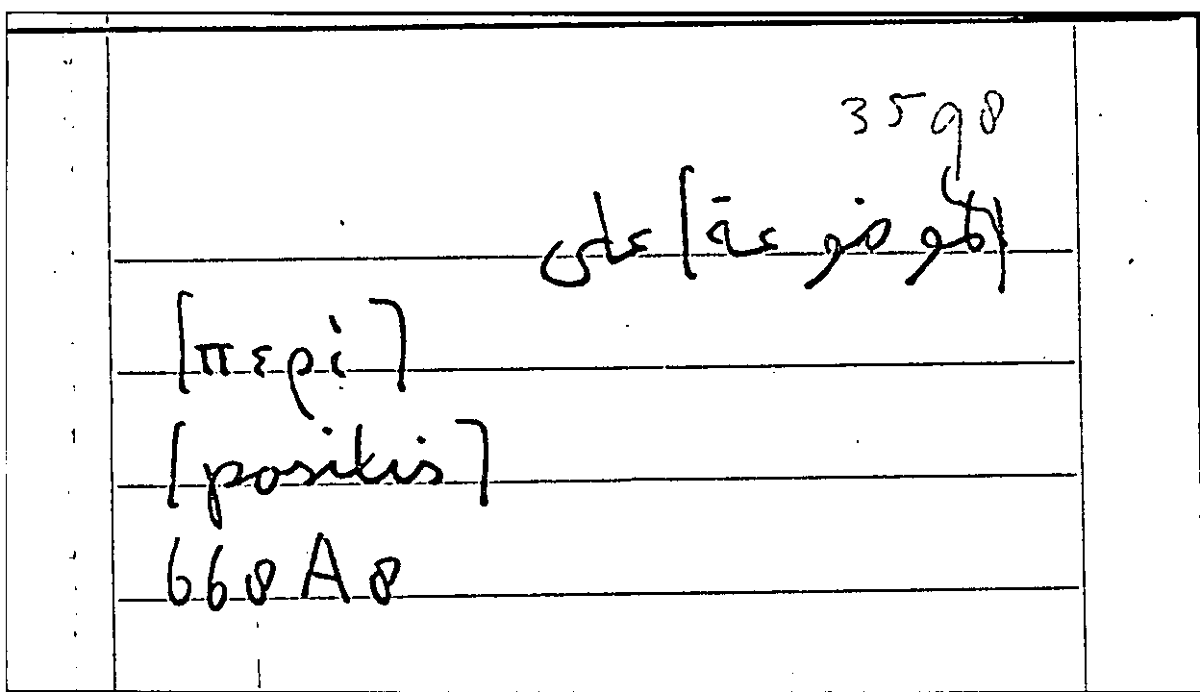 3598
[الموضوعة] على
[περί]
[positis]
668A8